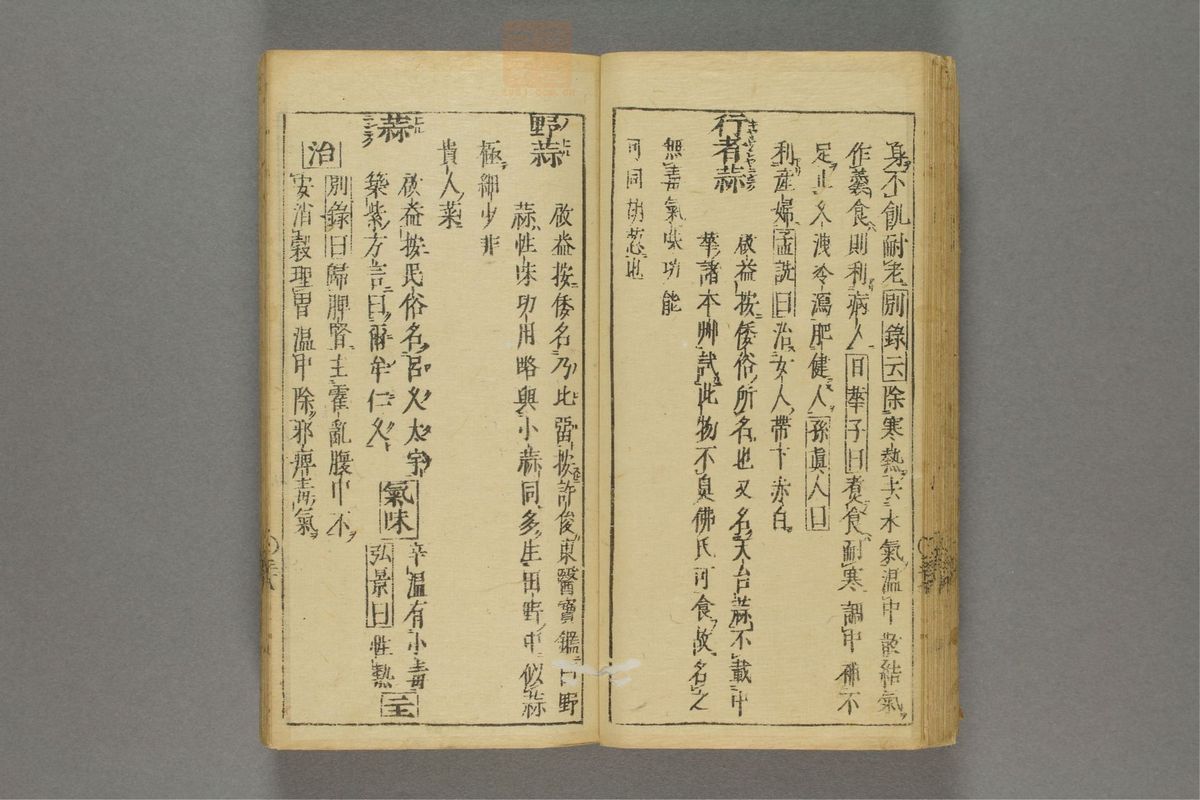 身不飢耐老別錄云除寒熱去水氣温中散結氣
作羹食則利病人日華子曰煮食耐寒調中補不
足止久洩冷瀉肥健人孫眞人曰
利産婦孟詵曰治女人帶下赤白
行者蒜
啟益按倭俗所名也又名天台蒜不載中
華諸本艸試此物不臭佛氏可食故名之
無毒氣味功能
可同胡葱也
野蒜
啟益按倭名乃比畱按許俊東醫寶鑑曰野
蒜性味功用略與小蒜同多生田野中似蒜
極細少非
貴人菜
蒜
啟益按民俗名呂又太宇
築紫方言曰爾牟仁久
氣味
辛温有小毒
弘景曰性熱
主
治
別錄曰歸脾腎主霍亂腹中不
安消穀理胃温中除邪痺毒氣